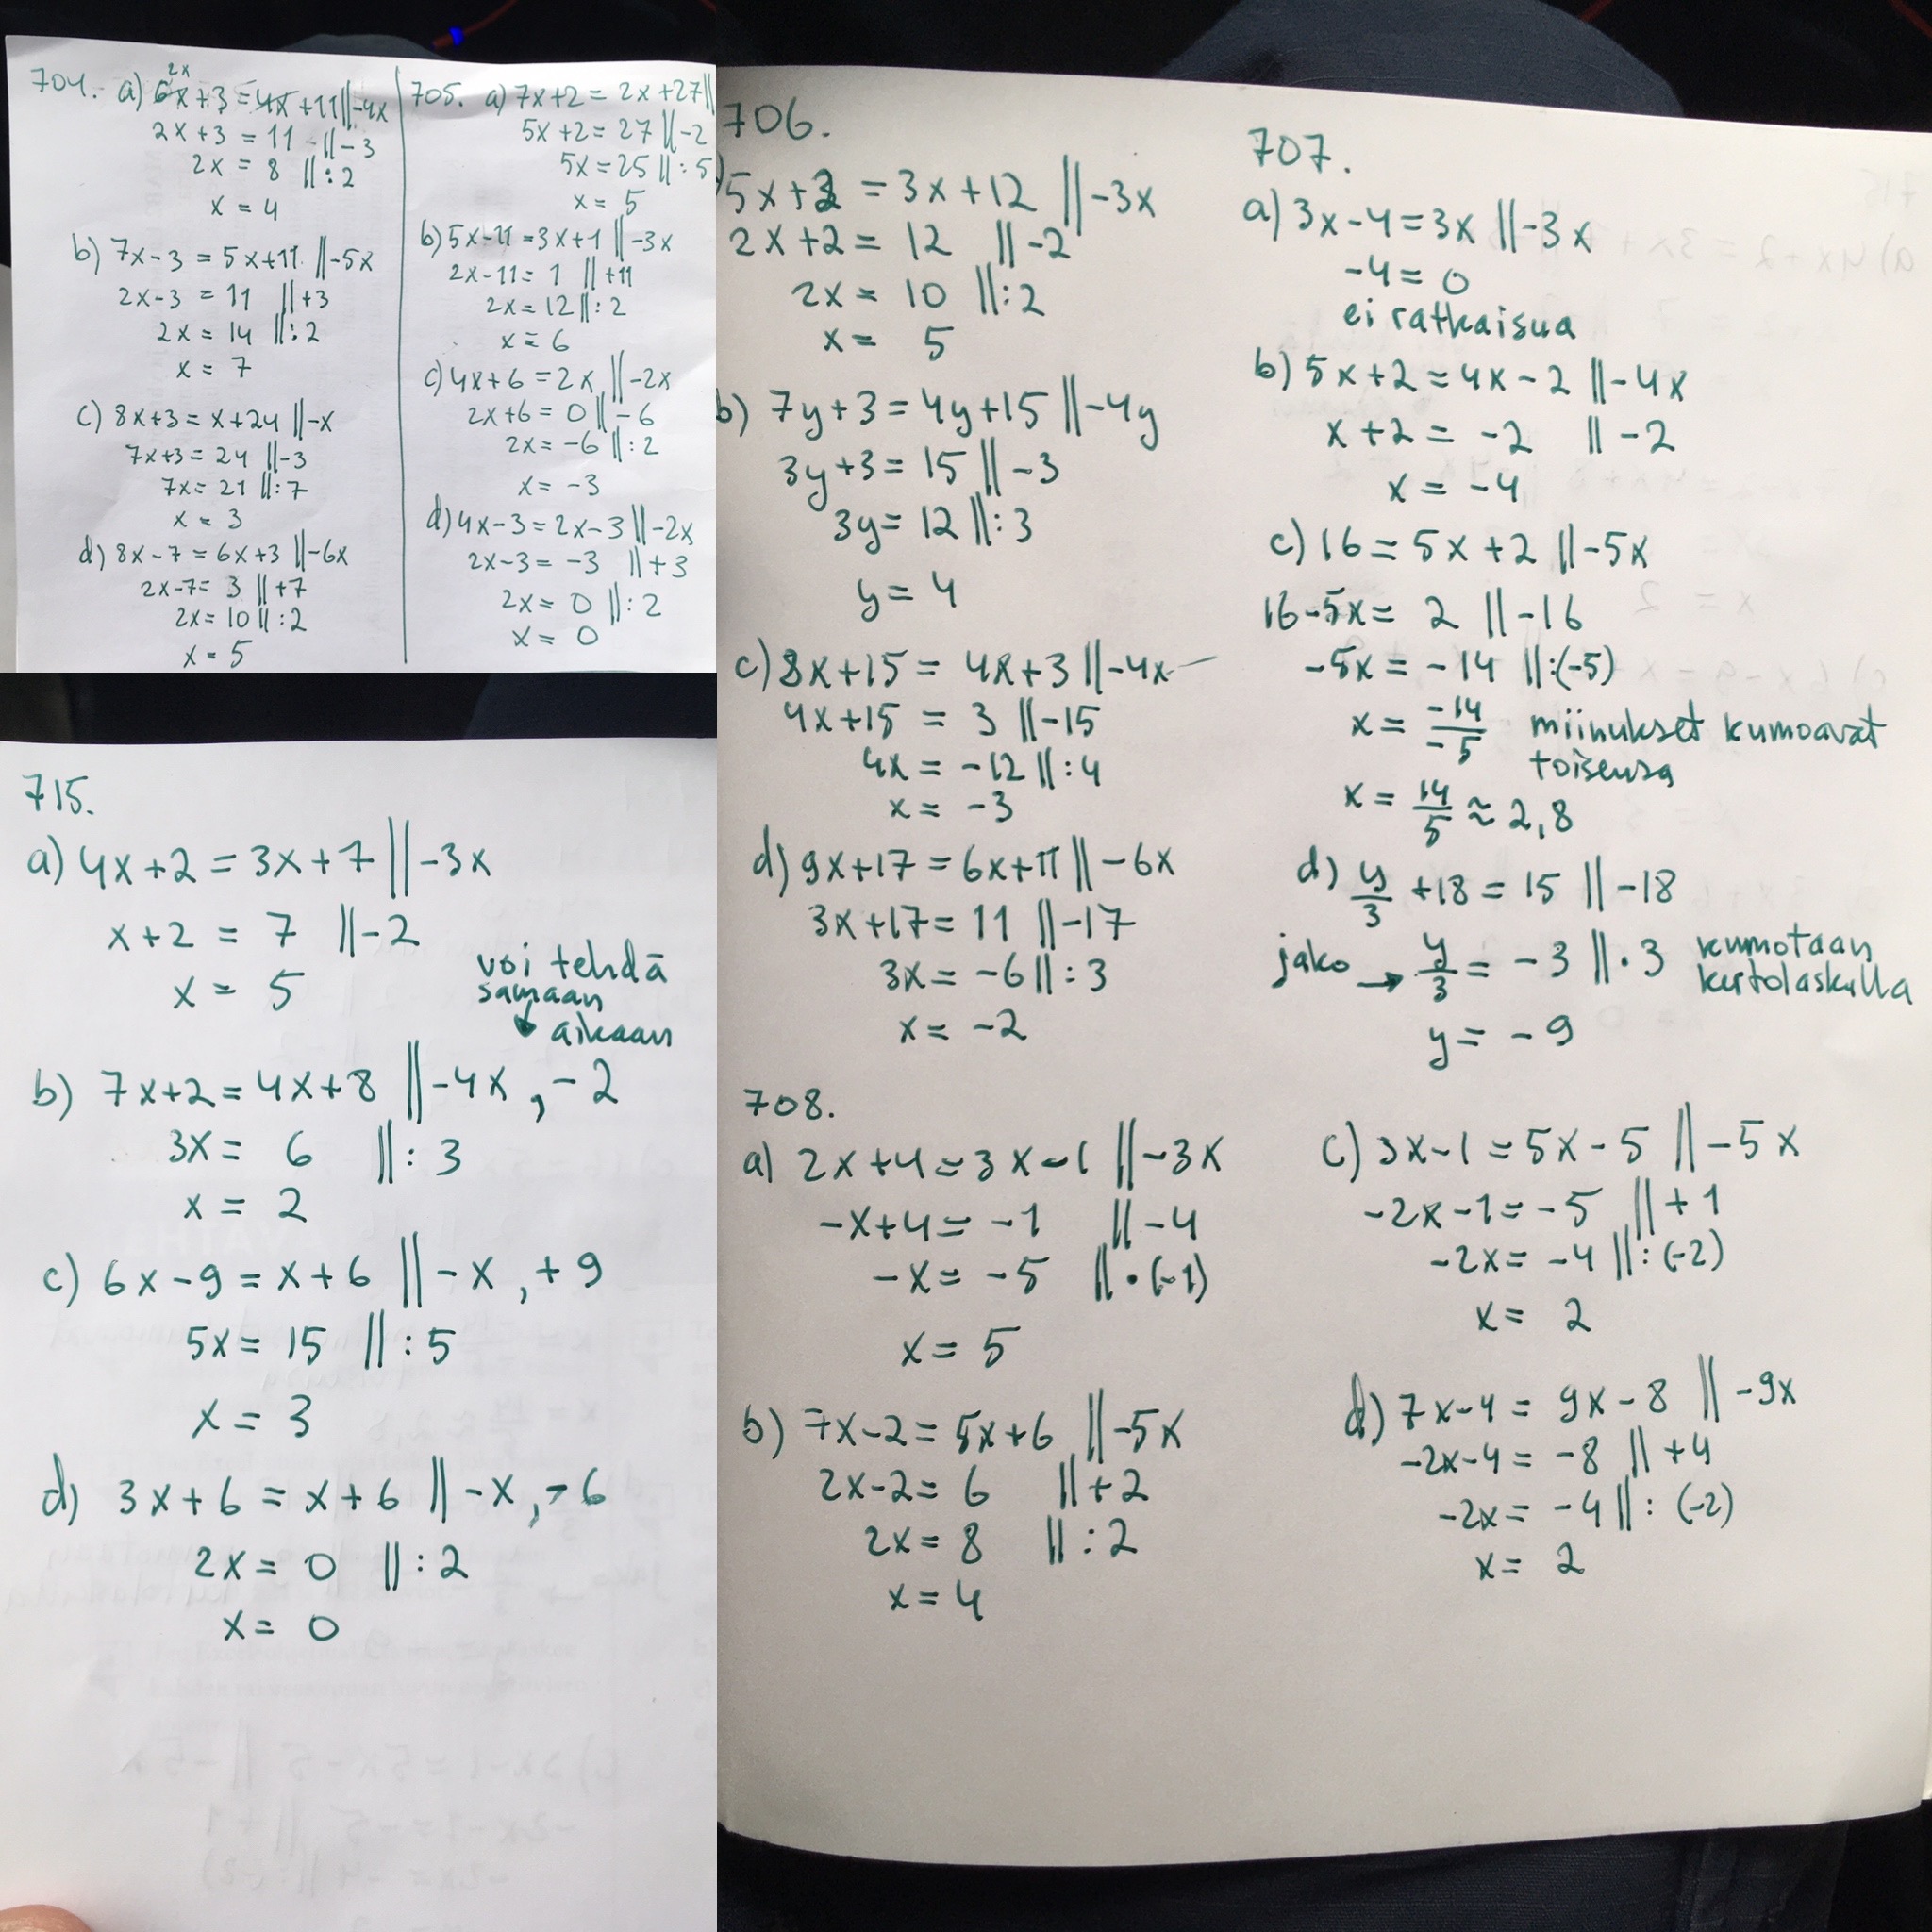 704. a) 6x+3 = 4x+11 ||-4x
2x
2x+3 = 11 ||-3
2x = 8 ||:2
x = 4
b) 7x-3 = 5x+11 ||-5x
2x-3 = 11 ||+3
2x = 14 ||:2
x = 7
c) 8x+3 = x+24 ||-x
7x+3 = 24 ||-3
7x = 21 ||:7
x = 3
d) 8x-7 = 6x+3 ||-6x
2x-7 = 3 ||+7
2x = 10 ||:2
x = 5
705. a) 7x+2 = 2x+27 ||
5x+2 = 27 ||-2
5x = 25 ||:5
x = 5
b) 5x-11 = 3x+1 ||-3x
2x-11 = 1 ||+11
2x = 12 ||:2
x = 6
c) 4x+6 = 2x ||-2x
2x+6 = 0 ||-6
2x = -6 ||:2
x = -3
d) 4x-3 = 2x-3 ||-2x
2x-3 = -3 ||+3
2x = 0 ||:2
x = 0
715.
a) 4x+2 = 3x+7 ||-3x
x+2 = 7 ||-2
x = 5
voi tehdä
samaan
aikaan
b) 7x+2 = 4x+8 ||-4x, -2
3x = 6 ||:3
x = 2
c) 6x-9 = x+6 ||-x, +9
5x = 15 ||:5
x = 3
d) 3x+6 = x+6 ||-x, -6
2x = 0 ||:2
x = 0
706.
) 5x+2 = 3x+12 ||-3x
2x+2 = 12 ||-2
2x = 10 ||:2
x = 5
b) 7y+3 = 4y+15 ||-4y
3y+3 = 15 ||-3
3y = 12 ||:3
y = 4
c) 8x+15 = 4x+3 ||-4x
4x+15 = 3 ||-15
4x = -12 ||:4
x = -3
d) 9x+17 = 6x+11 ||-6x
3x+17 = 11 ||-17
3x = -6 ||:3
x = -2
707.
a) 3x-4 = 3x ||-3x
-4 = 0
ei ratkaisua
b) 5x+2 = 4x-2 ||-4x
x+2 = -2 ||-2
x = -4
c) 16 = 5x+2 ||-5x
16-5x = 2 ||-16
-5x = -14 ||:(-5)
x = -14/-5 miinukset kumoavat
toisensa
x = 14/5 ≈ 2,8
d) y/3 +18 = 15 ||-18
jako → y/3 = -3 ||·3 kumotaan
kertolaskulla
y = -9
708.
a) 2x+4 = 3x-1 ||-3x
-x+4 = -1 ||-4
-x = -5 ||·(-1)
x = 5
b) 7x-2 = 5x+6 ||-5x
2x-2 = 6 ||+2
2x = 8 ||:2
x = 4
c) 3x-1 = 5x-5 ||-5x
-2x-1 = -5 ||+1
-2x = -4 ||:(-2)
x = 2
d) 7x-4 = 9x-8 ||-9x
-2x-4 = -8 ||+4
-2x = -4 ||:(-2)
x = 2